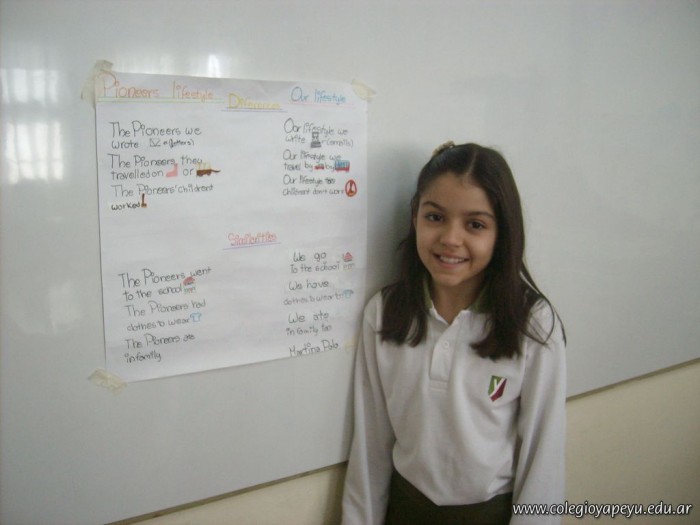 Pioneers lifestyle
Differences
Our lifestyle
The Pioneers we
wrote (letters)
The Pioneers they
travelled on or
The Pioneers' children
worked
Our lifestyle we
write (emails)
Our lifestyle we
travel by by
Our lifestyle
children don't work
Similarities
The Pioneers went
to the school
The Pioneers had
clothes to wear
The Pioneers ate
in family
We go
to the school
We have
clothes to wear
We ate
in family too
Martina
Y
www.colegioyapeyu.edu.ar